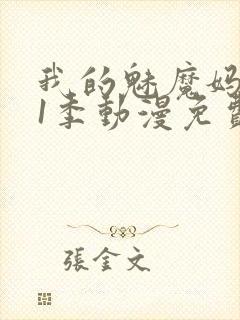 我的魅魔妈
1季動漫免費
張金文